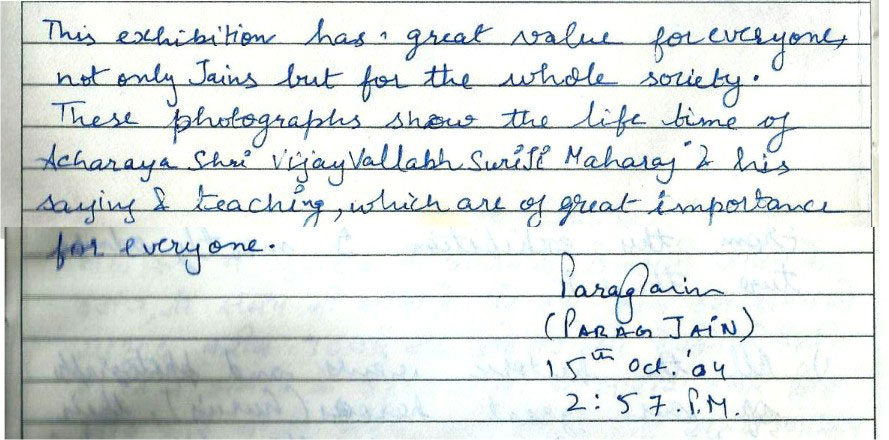 This exhibition has great value for everyone,
not only Jains but for the whole society.
These photographs show the life time of
Acharaya Shri Vijay Vallabh Suriji Maharaj & his
saying & teaching, which are of great importance
for everyone.
Parag Jain
(PARAG JAIN)
15th Oct.'04
2:57.P.M.